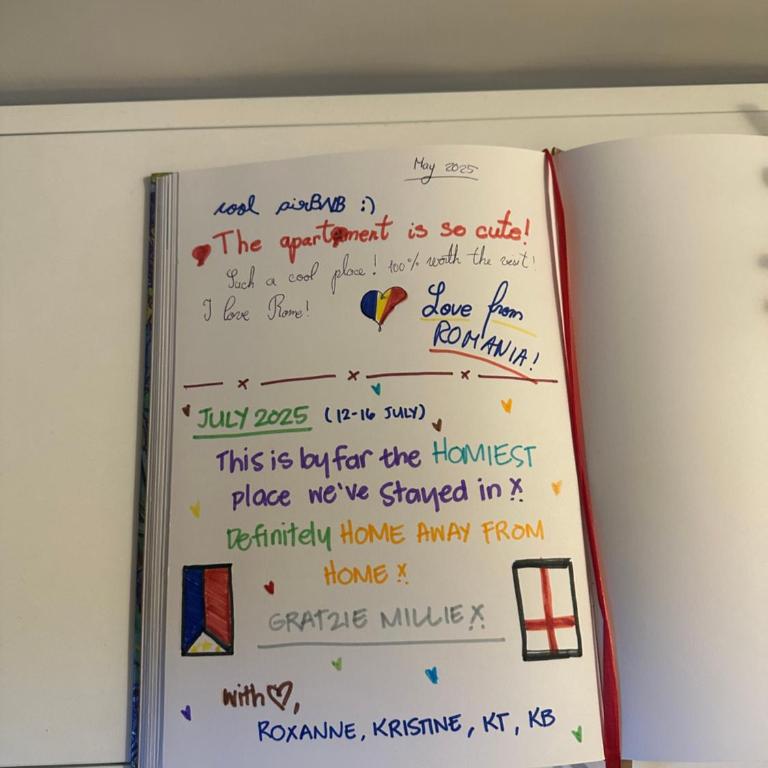 May 2025
cool airBNB :)
The apartement is so cute!
Such a cool place! 100% worth the visit!
I love Rome!
Love from
ROMANIA!
JULY 2025 (12-16 JULY)
This is by far the HOMIEST
place we've stayed in X
Definitely HOME AWAY FROM
HOME X
GRATZIE MILLIE X
with ♡,
ROXANNE, KRISTINE, KT, KB